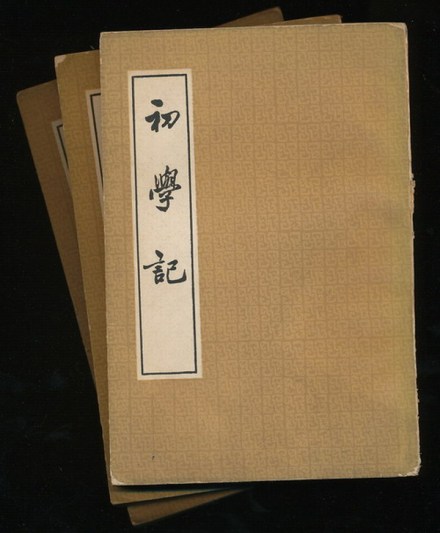 初學記